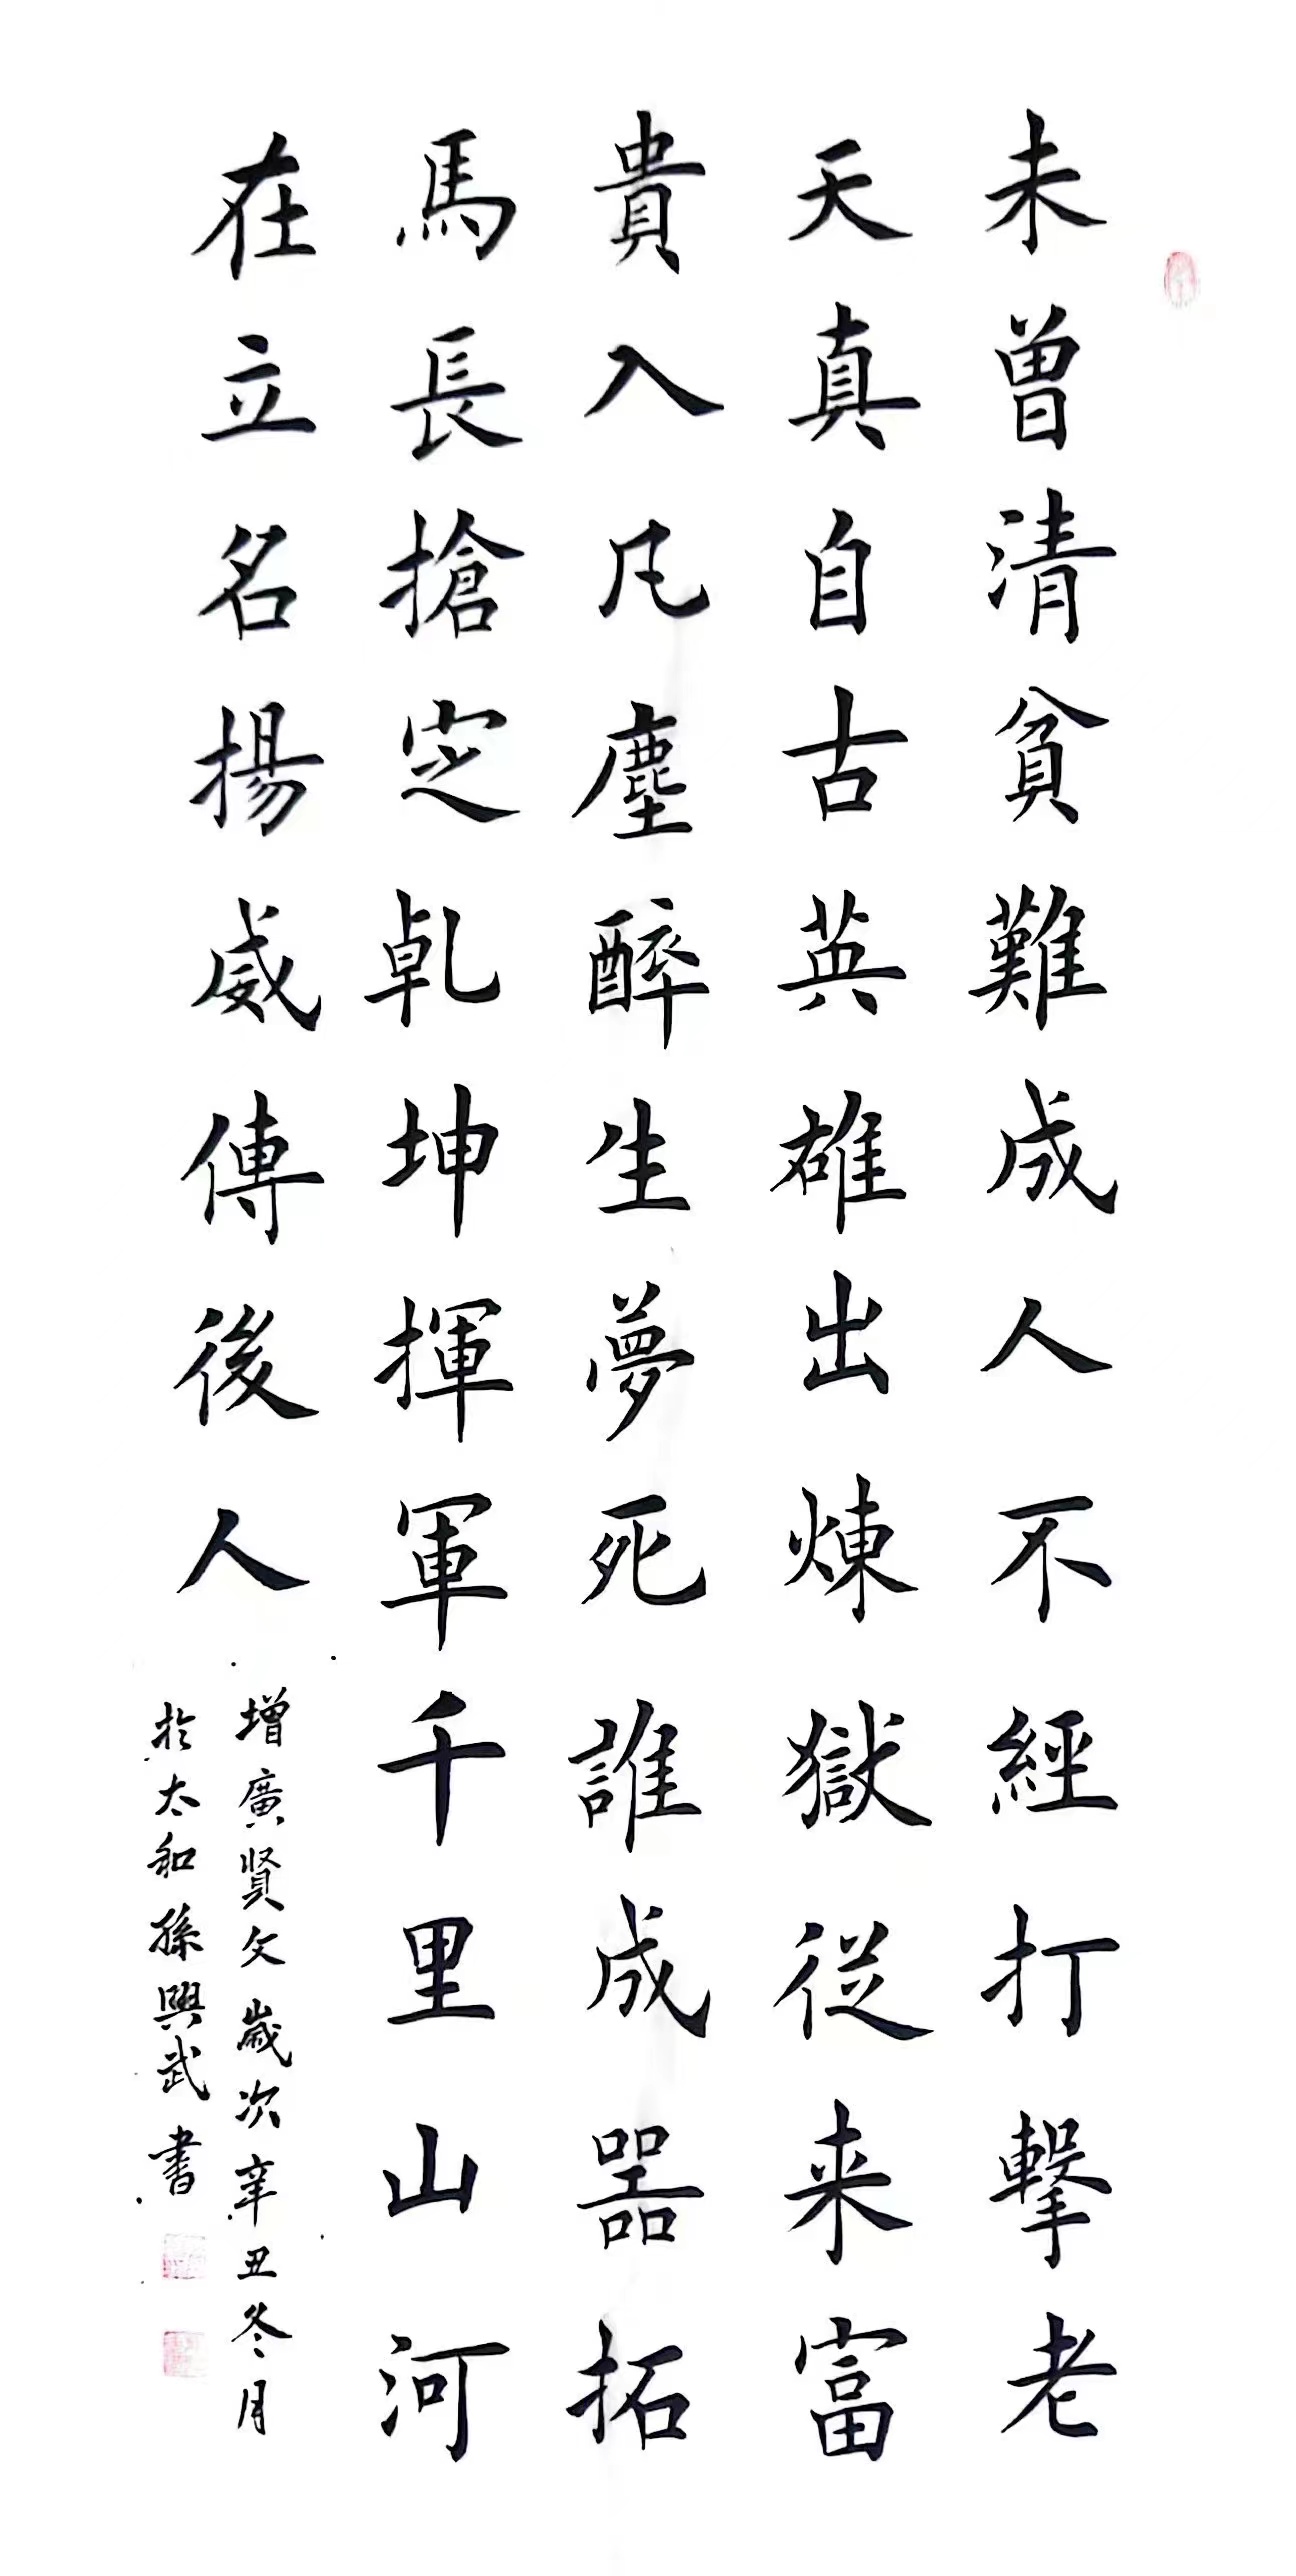 未曾清貧難成人不經打擊老
天真自古英雄出煉獄從来富
貴入凡塵醉生夢死誰成器拓
馬長搶定乹坤揮軍千里山河
在立名揚威傳後人
增廣贤文歲次辛丑冬月
於太和孫興武書